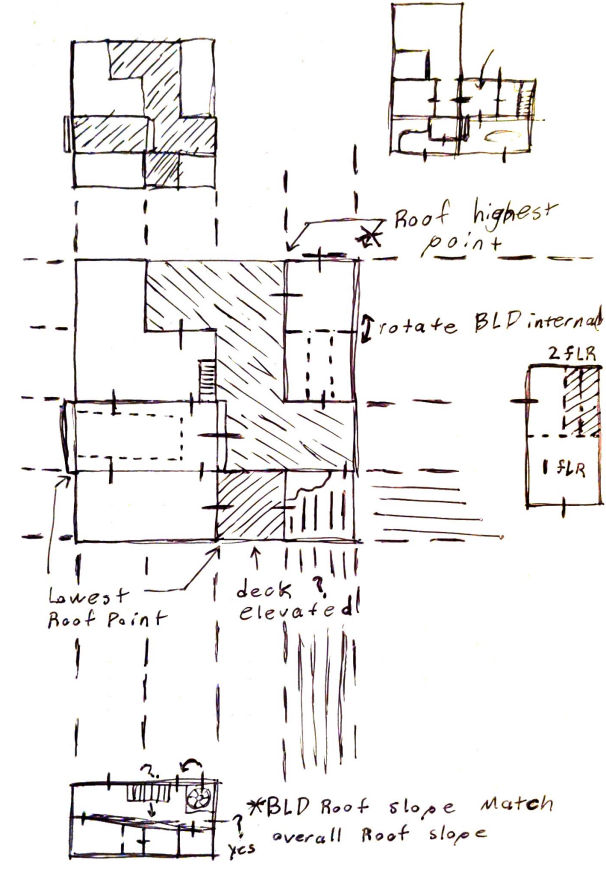 Roof highest
* point
rotate BLD internal
2 FLR
1 FLR
Lowest
Roof Point
deck ?
elevated
?
*BLD Roof slope Match
overall Roof slope
?
yes